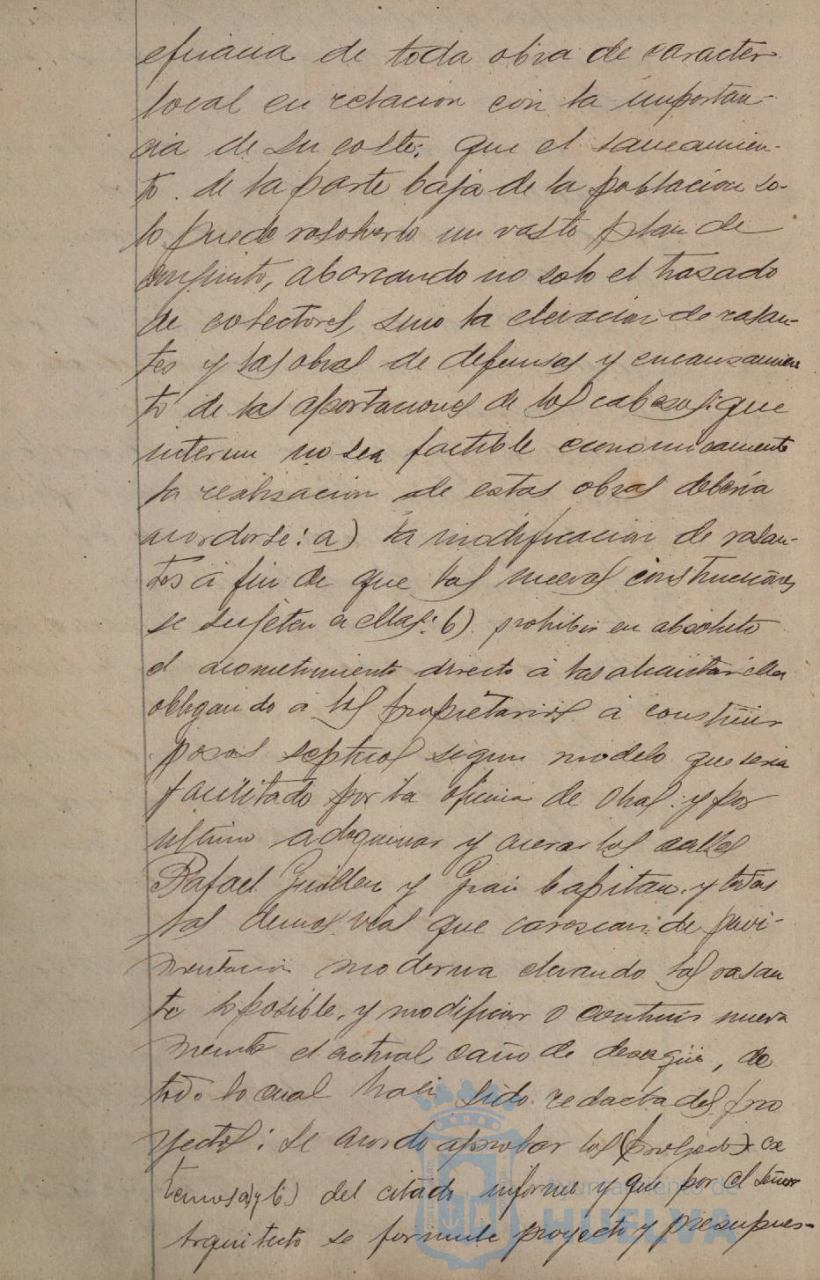 eficacia de toda obra de caracter
local en relacion con la importan-
cia de su coste; que el saneamien-
to de la parte baja de la poblacion so-
lo puede resolverlo un vasto plan de
conjunto, abarcando no solo el trazado
de colectores, sino la elevacion de rasan-
tes y las obras de defensas y encauzamien
to de las aportaciones de los cabezos: que
interin no sea factible economicamente
la realizacion de estas obras deberia
acordarse: a) la modificacion de rasan-
tes á fin de que las nuevas construcciones
se sujeten a ellas: b) prohibir en absoluto
el acometimiento directo á las alcantarillas
obligando a los propietarios á construir
pozos septicos segun modelo que seria
facilitado por la oficina de Obras: y por
ultimo adoquinar y acerar las calles
Rafael Guillen y Gran Capitan, y todas
las demas vias que carezcan de pavi-
mentacion moderna elevando las rasan
te lo posible, y modificar o construir nueva
mente el actual caño de desagüe, de
todo lo cual han sido redactados pro
yectos: Se acordo aprobar los
a) y b) del citado informe y que por el Señor
Arquitecto se formule proyecto y presupues-
Ayuntamiento de
HUELVA